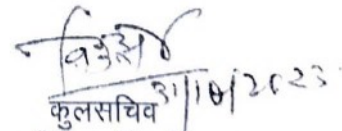 कुलसचिव 31/10/2023